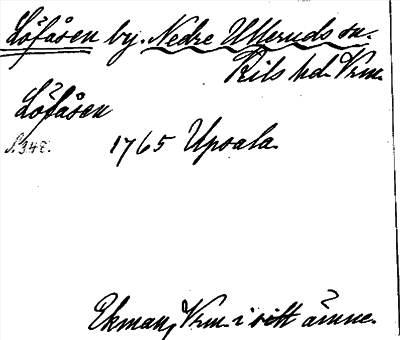 Löfåsen by. Nedre Ulleruds sn.
Kils hd. Vrm.
Löfåsen
S. 348. 1765 Upsala.
Ekman, Vrm. i sitt ämne.